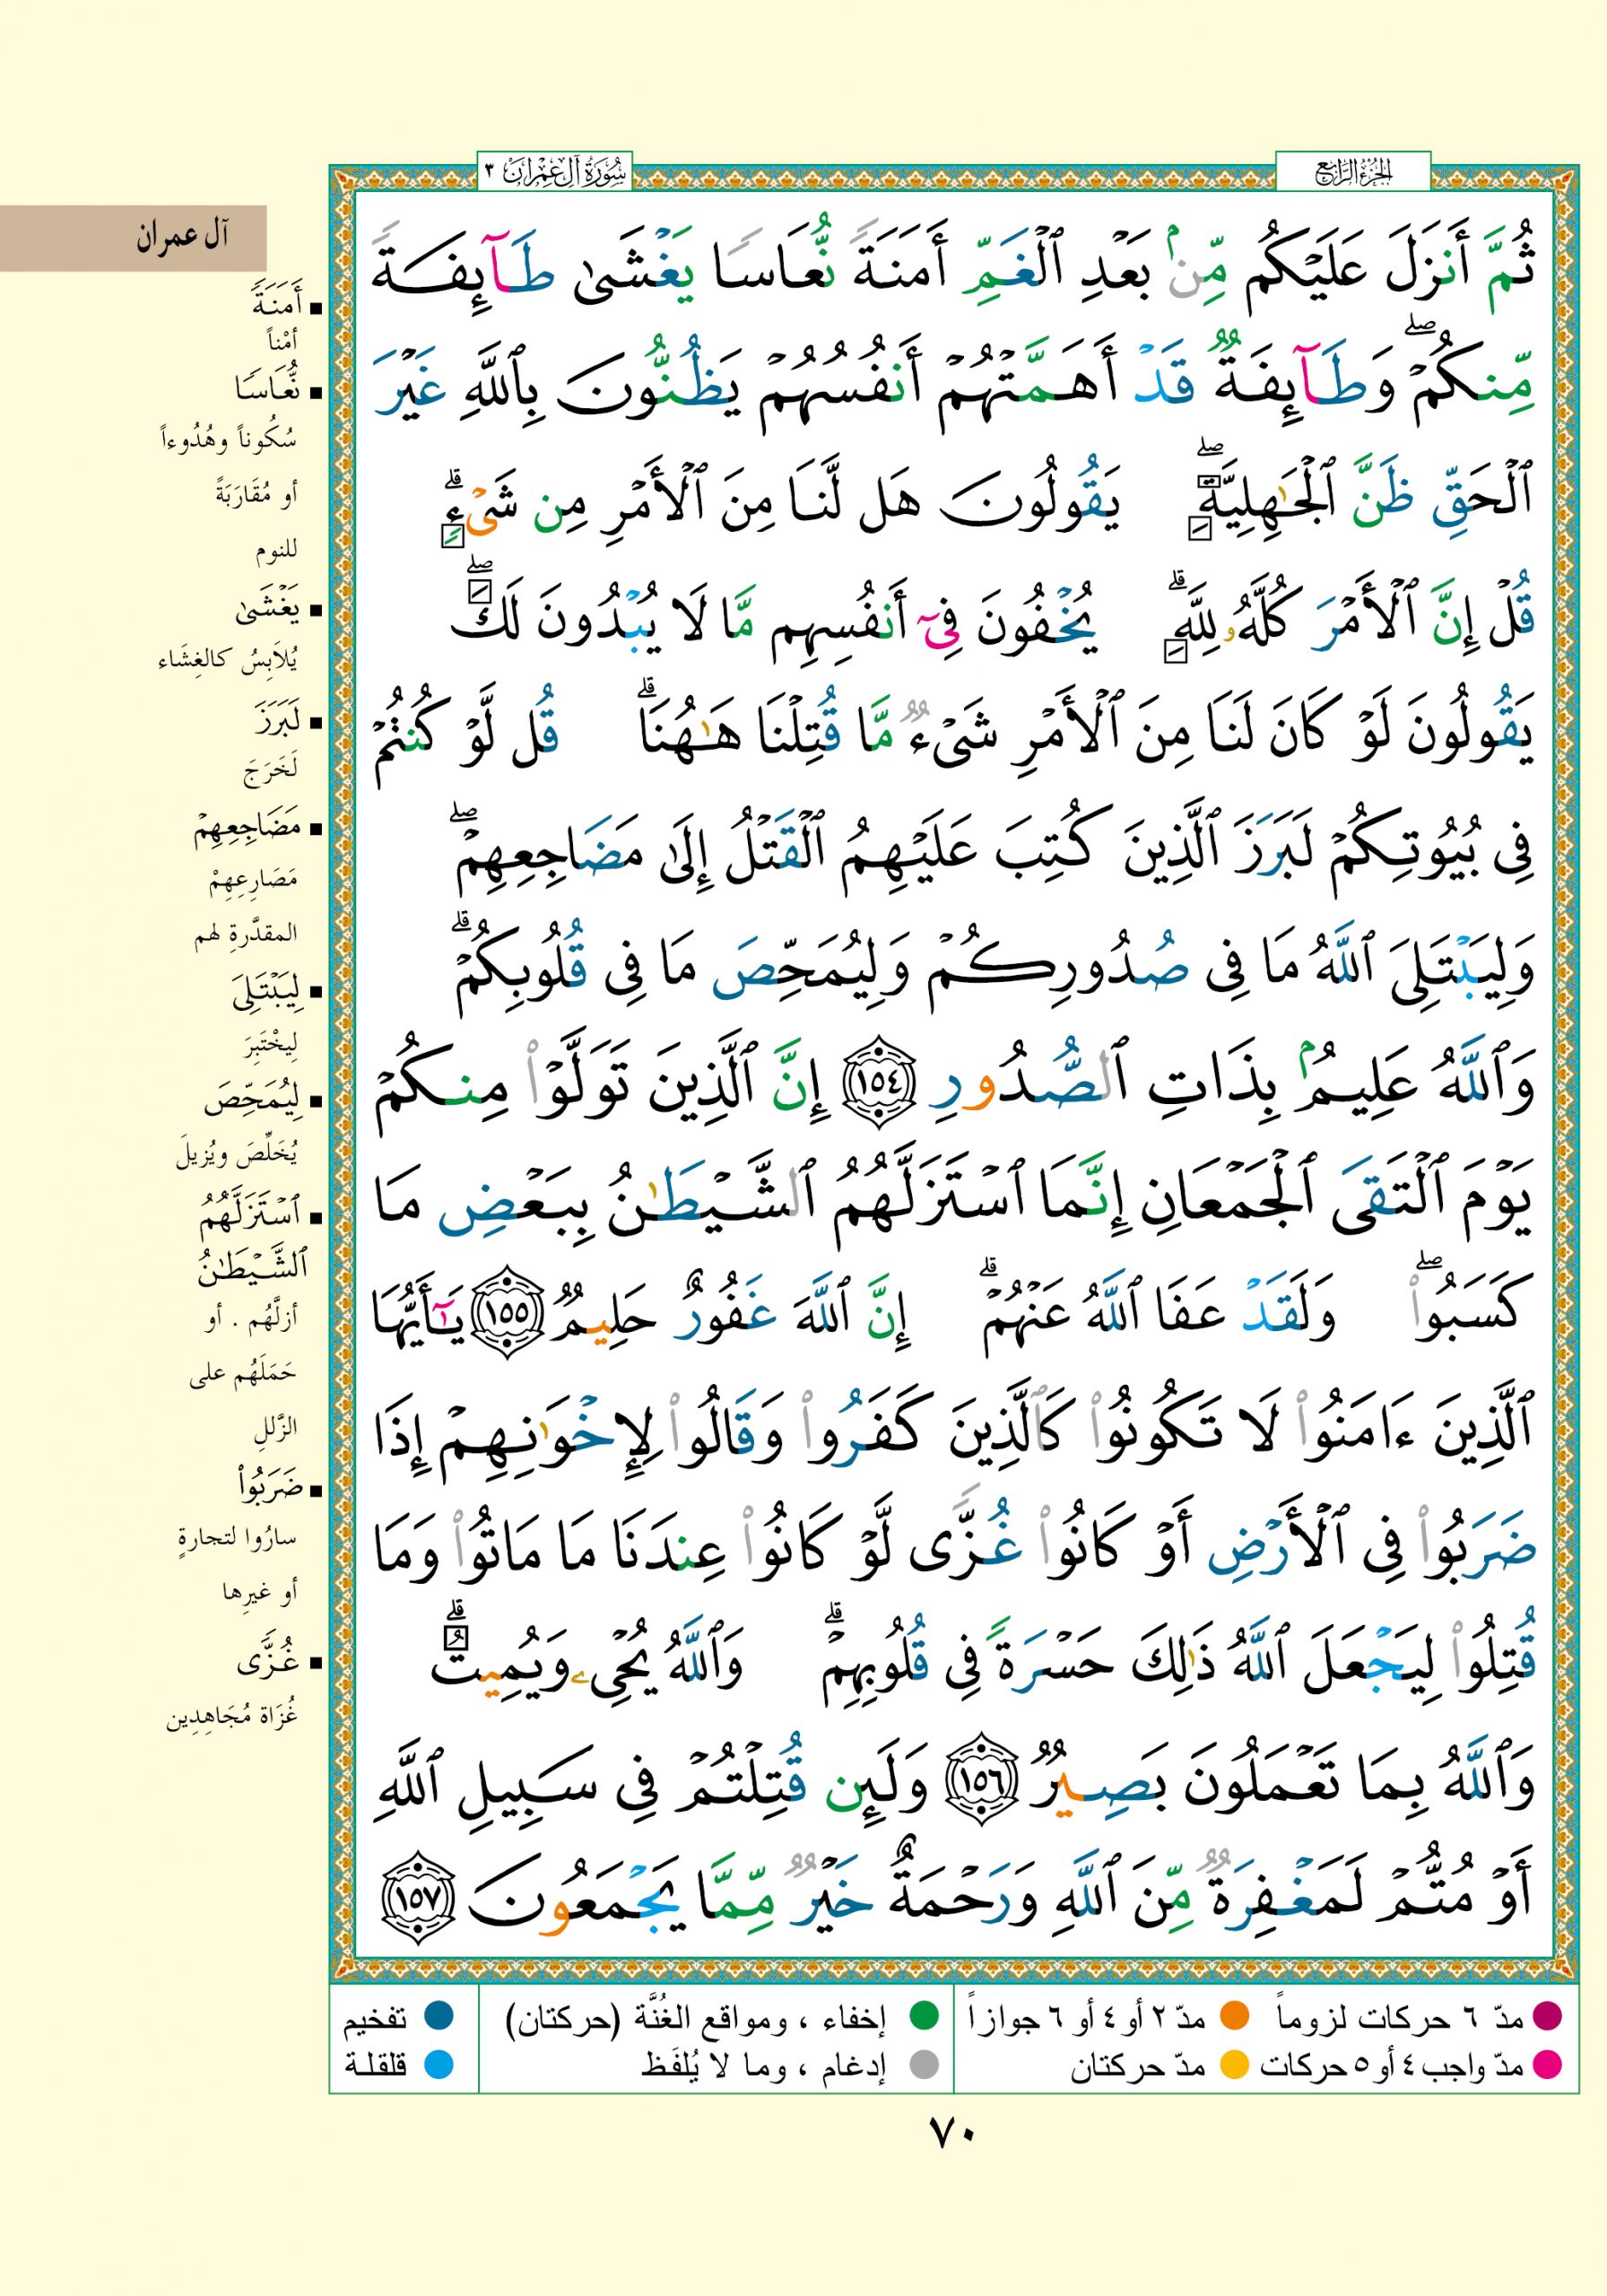 الجزء الرابع
سورة آل عمران ٣
ثُمَّ أَنزَلَ عَلَيْكُم مِّنۢ بَعْدِ ٱلْغَمِّ أَمَنَةً نُّعَاسًا يَغْشَىٰ طَآئِفَةً
مِّنكُمْ ۖ وَطَآئِفَةٌ قَدْ أَهَمَّتْهُمْ أَنفُسُهُمْ يَظُنُّونَ بِٱللَّهِ غَيْرَ
ٱلْحَقِّ ظَنَّ ٱلْجَٰهِلِيَّةِ ۖ يَقُولُونَ هَل لَّنَا مِنَ ٱلْأَمْرِ مِن شَىْءٍ ۗ
قُلْ إِنَّ ٱلْأَمْرَ كُلَّهُۥ لِلَّهِ ۗ يُخْفُونَ فِىٓ أَنفُسِهِم مَّا لَا يُبْدُونَ لَكَ ۖ
يَقُولُونَ لَوْ كَانَ لَنَا مِنَ ٱلْأَمْرِ شَىْءٌ مَّا قُتِلْنَا هَٰهُنَا ۗ قُل لَّوْ كُنتُمْ
فِى بُيُوتِكُمْ لَبَرَزَ ٱلَّذِينَ كُتِبَ عَلَيْهِمُ ٱلْقَتْلُ إِلَىٰ مَضَاجِعِهِمْ ۖ
وَلِيَبْتَلِىَ ٱللَّهُ مَا فِى صُدُورِكُمْ وَلِيُمَحِّصَ مَا فِى قُلُوبِكُمْ ۗ
وَٱللَّهُ عَلِيمٌۢ بِذَاتِ ٱلصُّدُورِ ١٥٤ إِنَّ ٱلَّذِينَ تَوَلَّوْا۟ مِنكُمْ
يَوْمَ ٱلْتَقَى ٱلْجَمْعَانِ إِنَّمَا ٱسْتَزَلَّهُمُ ٱلشَّيْطَٰنُ بِبَعْضِ مَا
كَسَبُوا۟ ۖ وَلَقَدْ عَفَا ٱللَّهُ عَنْهُمْ ۗ إِنَّ ٱللَّهَ غَفُورٌ حَلِيمٌ ١٥٥ يَٰٓأَيُّهَا
ٱلَّذِينَ ءَامَنُوا۟ لَا تَكُونُوا۟ كَٱلَّذِينَ كَفَرُوا۟ وَقَالُوا۟ لِإِخْوَٰنِهِمْ إِذَا
ضَرَبُوا۟ فِى ٱلْأَرْضِ أَوْ كَانُوا۟ غُزًّى لَّوْ كَانُوا۟ عِندَنَا مَا مَاتُوا۟ وَمَا
قُتِلُوا۟ لِيَجْعَلَ ٱللَّهُ ذَٰلِكَ حَسْرَةً فِى قُلُوبِهِمْ ۗ وَٱللَّهُ يُحْىِۦ وَيُمِيتُ ۗ
وَٱللَّهُ بِمَا تَعْمَلُونَ بَصِيرٌ ١٥٦ وَلَئِن قُتِلْتُمْ فِى سَبِيلِ ٱللَّهِ
أَوْ مُتُّمْ لَمَغْفِرَةٌ مِّنَ ٱللَّهِ وَرَحْمَةٌ خَيْرٌ مِّمَّا يَجْمَعُونَ ١٥٧
آل عمران
■ أَمَنَةً
أمْناً
■ نُّعَاسًا
سُكُوناً وهُدُوءاً
أو مُقَارَبَةً
للنوم
■ يَغْشَىٰ
يُلاَبِسُ كالغِشَاء
■ لَبَرَزَ
لَخَرَجَ
■ مَضَاجِعِهِمْ
مَصَارِعِهِمْ
المقدَّرةِ لهم
■ لِيَبْتَلِىَ
لِيخْتَبِرَ
■ لِيُمَحِّصَ
يُخَلِّصَ ويُزيلَ
■ ٱسْتَزَلَّهُمُ
ٱلشَّيْطَٰنُ
أزلَّهُم . أو
حَمَلَهُم على
الزَّللِ
■ ضَرَبُوا۟
سارُوا لتجارةٍ
أو غيرِها
■ غُزًّى
غُزَاة مُجَاهِدِين
مدّ ٦ حركات لزوماً
مدّ ٢ أو ٤ أو ٦ جوازاً
إخفاء ، ومواقع الغُنَّة (حركتان)
تفخيم
مدّ واجب ٤ أو ٥ حركات
مدّ حركتان
إدغام ، وما لا يُلفَظ
قلقلة
٧٠